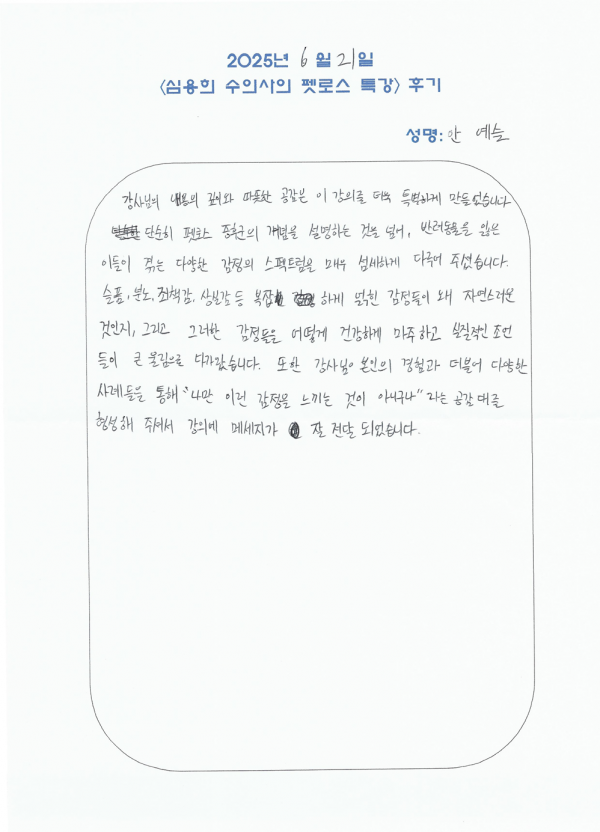 2025년 6월 21일
<심용희 수의사의 펫로스 특강> 후기
성명: 안 예슬
강사님의 내용의 깊이와 따뜻한 공감은 이 강의를 더욱 특별하게 만들었습니다
단순히 펫로스 증후군의 개념을 설명하는 것을 넘어, 반려동물을 잃은
이들이 겪는 다양한 감정의 스펙트럼을 매우 섬세하게 다루어 주셨습니다.
슬픔, 분노, 죄책감, 상실감 등 복잡하게 얽힌 감정들이 왜 자연스러운
것인지, 그리고 그러한 감정들을 어떻게 건강하게 마주하고 실질적인 조언
들이 큰 울림으로 다가왔습니다. 또한 강사님이 본인의 경험과 더불어 다양한
사례들을 통해 "나만 이런 감정을 느끼는 것이 아니구나" 라는 공감대를
형성해 주셔서 강의에 메세지가 잘 전달 되었습니다.